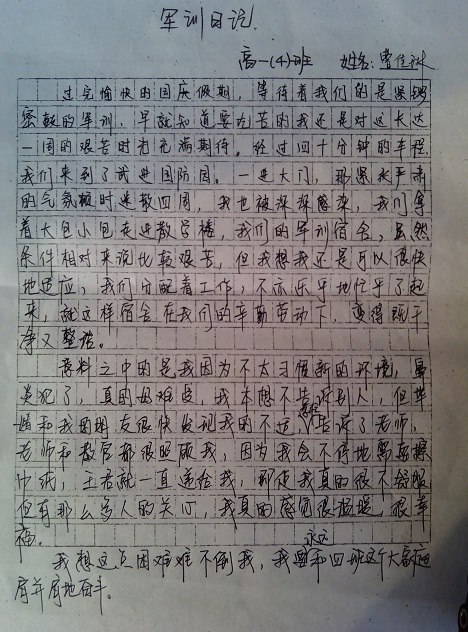 军训日记.
高一(4)班 姓名:曹佳
过完愉快的国庆假期，等待着我们的是紧锣
密鼓的军训，早就知道要吃苦的我还是对这长达
一周的艰苦时光充满期待。经过四十分钟的车程
我们来到了武进国防园。一进大门，那果严肃
的气氛顿时迷散四周，我也被深深感染，我们拿
着大包小包走进教学楼，我们的军训宿舍，虽然
条件相对来说比较艰苦，但我想我还是可以很快
地适应，我们分配着工作，不亦乐乎地忙乎了起
来，就这样宿舍在我们的辛勤劳动下，变得既干
净又整洁。
意料之中的是我因为不太习惯新的环境，鼻
炎犯了，真的好难受，我本想不告诉别人，但
婧和我的朋友很快发现我的不适，告诉了老师，
老师和教官都很照顾我，因为我会不停地需要擦
巾纸，王君就一直递给我，那使我真的很不舒服
但有那么多人的关心，我真的感觉很温暖，很幸
福。
我想这点困难难不倒我，我要永远和四班这个大家庭
肩并肩地奋斗。